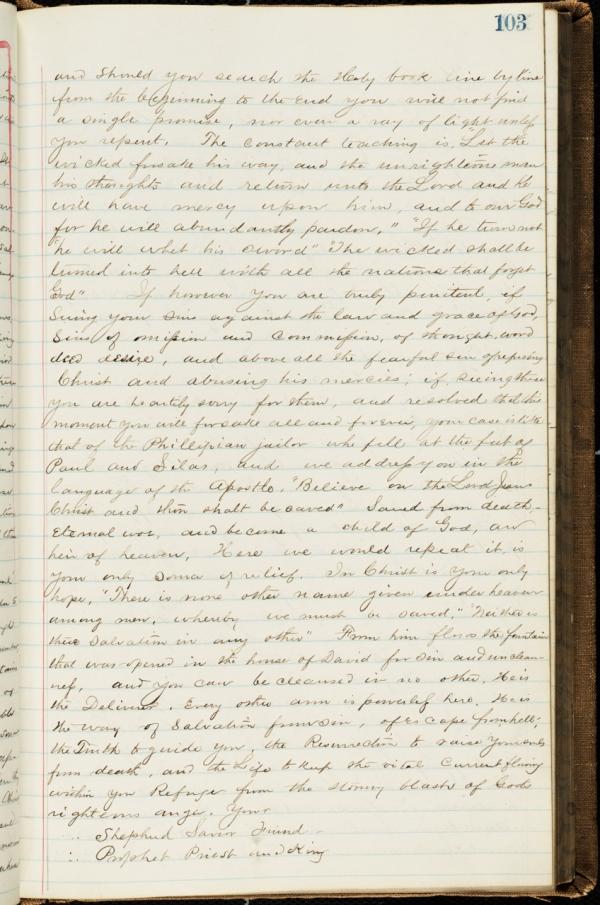 103
and should you search the Holy book line by line
from the beginning to the End you will not find
a single promise, nor even a ray of light unless
you repent. The constant teaching is, "Let the
wicked forsake his way, and the unrighteous man
his thoughts and return unto the Lord and he
will have mercy upon him, and to our God
for he will abundantly pardon." "If he turn not
he will whet his sword" "The wicked shall be
turned into hell with all the nations that forget
God" If however you are truly penitent, if
seing your sins against the law and grace of God,
Sins of omission and commission, of thought, word
deed desire, and above all the fearful sin of refusing
Christ and abusing his mercies; if, seeing these
you are heartily sorry for them, and resolved that this
moment you will forsake all and forever, your case is like
that of the Phillipian jailor who fell at the feet of
Paul and Silas, and we address you in the
language of the Apostle. "Believe on the Lord Jesus
Christ and thou shalt be saved" Saved from death,
Eternal woe, and become a child of God, an
heir of heaven. Here we would repeat it is
your only source of relief. In Christ is your only
hope, "There is none other name given under heaven
among men, whereby we must be saved." "Neither is
there Salvation in any other" From him flows the fountain
that was opened in the house of David for sin and unclean-
ness, and you can be cleansed in no other. He is
the Deliverer. Every other arm is powerless here. He is
the way of Salvation from sin, of escape from hell;
the Truth to guide you, the Resurrection to raise you
from death, and the Life to keep the vital current flowing
within you Refuge from the stormy blasts of Gods
righteous anger. Your
Shepherd Savior Friend
Prophet Priest and King